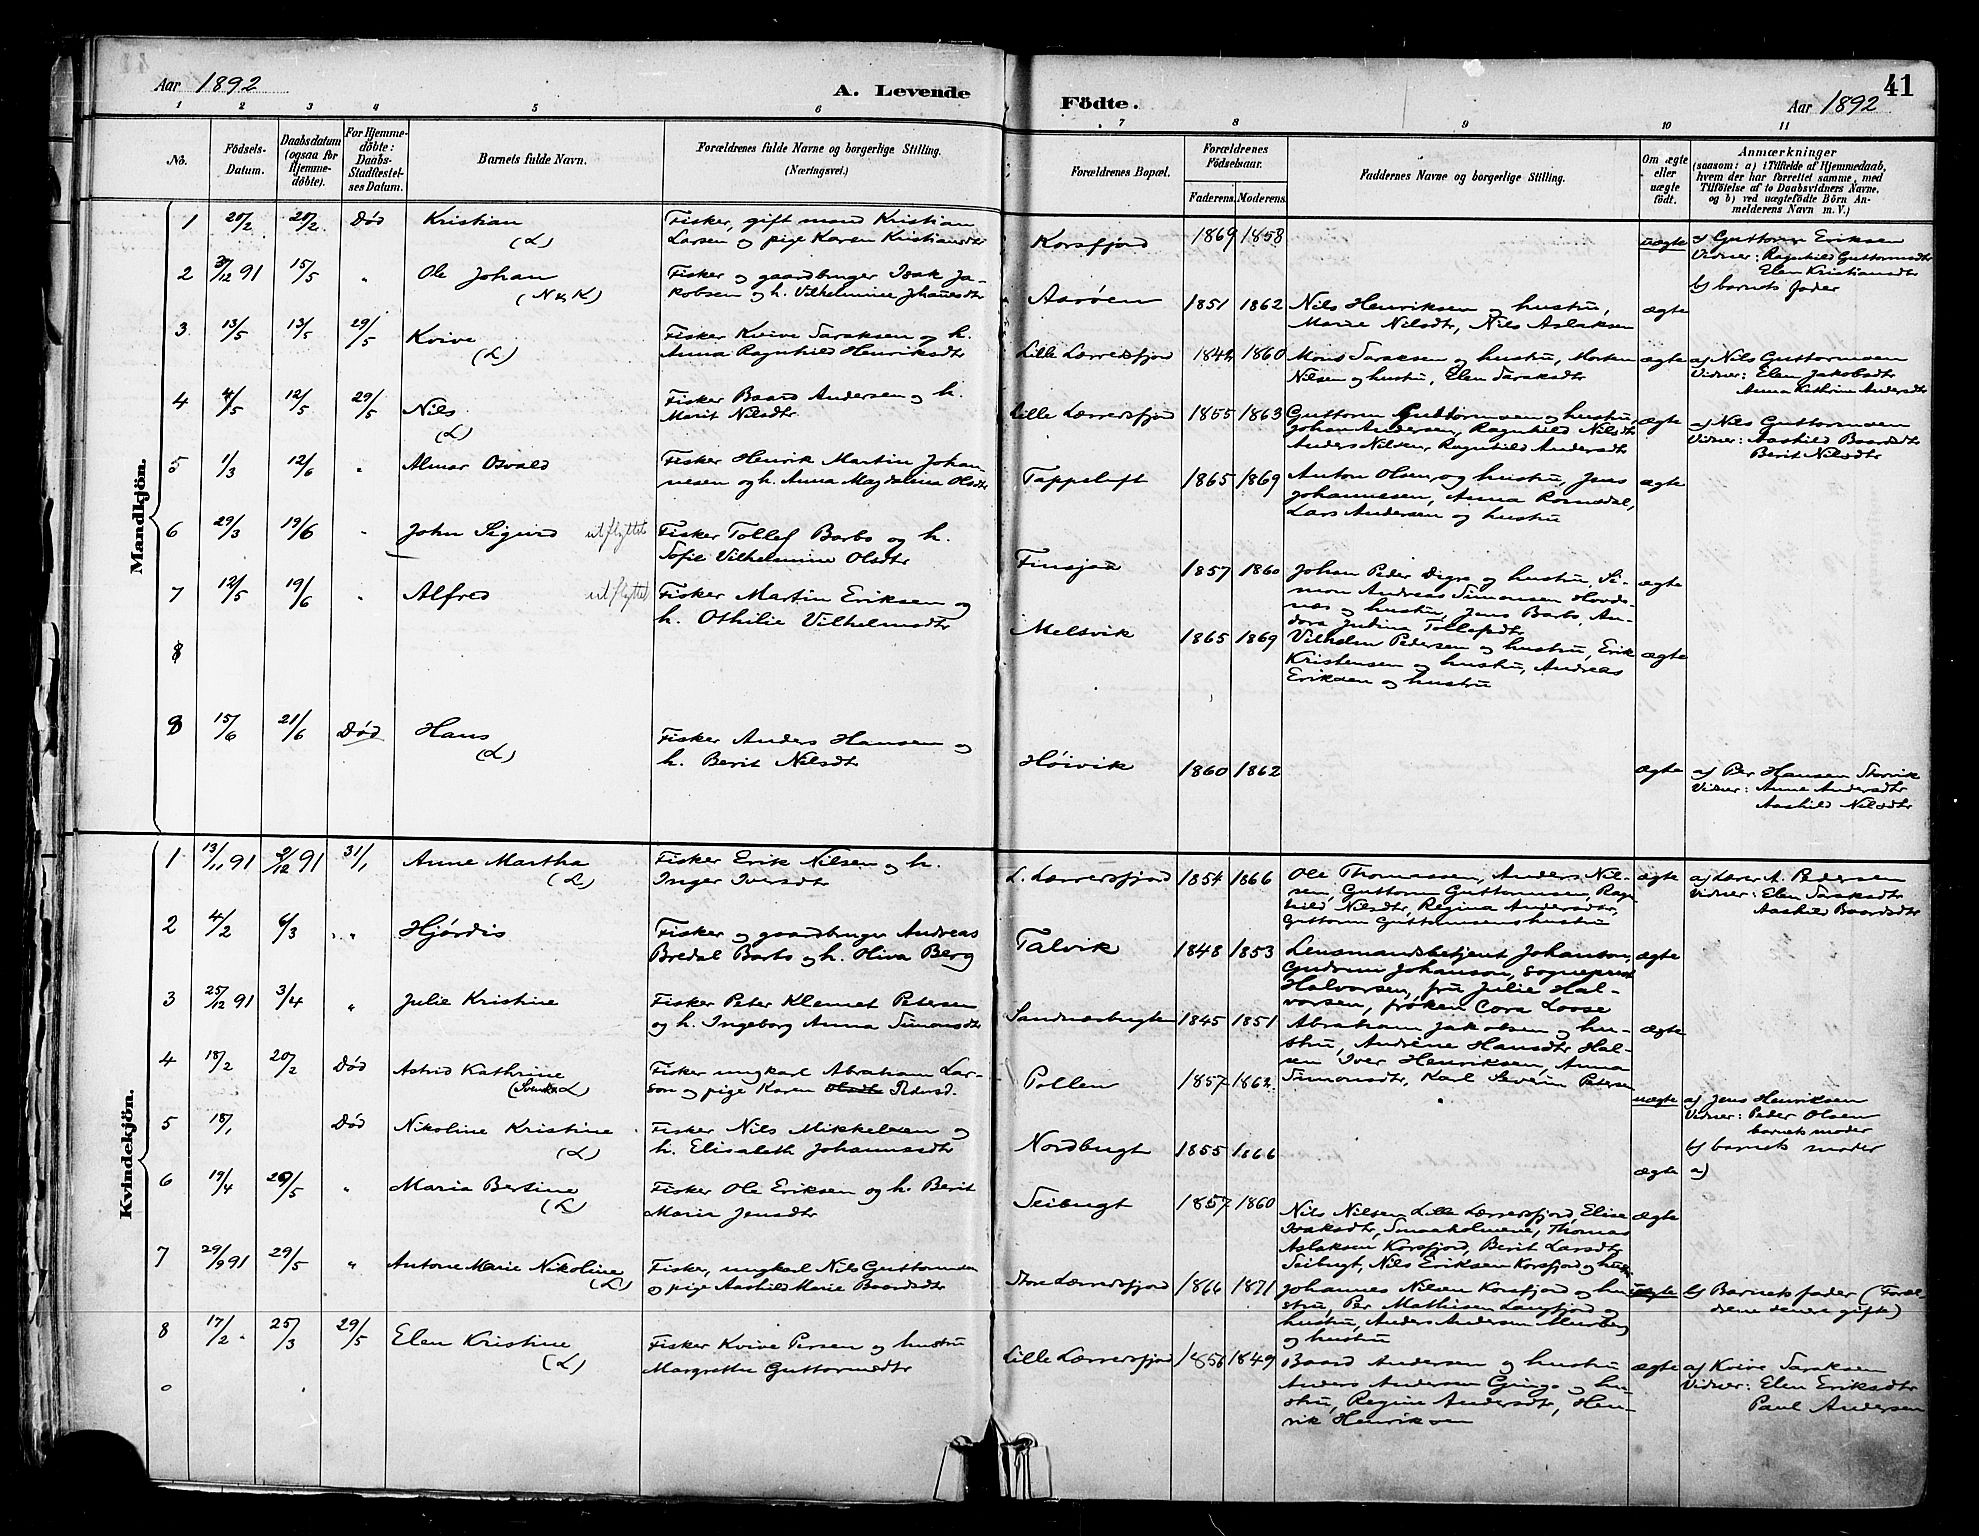 41
Aar 1892
A. Levende Födte.
Aar 1892
1 2 3 4 5 6 7 8 9 10 11
No.
Födsels-
Datum.
Daabsdatum
(ogsaa for
Hjemme-
döbte).
For Hjemme-
döbte:
Daabs-
Stadfæstel-
ses Datum.
Barnets fulde Navn.
Forældrenes fulde Navne og borgerlige Stilling.
(Næringsvei.)
Forældrenes Bopæl.
Forældrenes
Födselsaar.
Faderens. Moderens.
Faddernes Navne og borgerlige Stilling.
Om ægte
eller
uægte
födt.
Anmærkninger
(saasom: a) i Tilfælde af Hjemmedaab,
hvem der har forrettet samme, med
Tilföielse af to Daabsvidners Navne,
og b) ved uægtefödte Börn An-
melderens Navn m. V.)
Mandkjön.
1 20/2 20/2 Död Kristian
(L)
Fisker, gift mand Kristian
Larsen og pige Karen Kristiansdtr
Korsfjord 1869 1858 uægte
a) Guttorm Eriksen
Vidner: Ragnhild Guttormsdtr
Elen Kristiansdtr
b) barnets fader
2 31/12 91 15/5 " Ole Johan
(N & K)
Fisker og gaardbruger Isak Ja-
kobsen og h. Vilhelmine Johannesdtr
Aarøen 1851 1862
Nils Henriksen og hustru,
Marie Nilsdtr, Nils Aslaksen
ægte
3 13/5 13/5 29/5 Kvive
(L)
Fisker Kvive Saraksen og h.
Anna Ragnhild Henriksdtr
Lille Lærredsfjord 1844 1860
Mons Saraksen og hustru, Morten
Nilsen og hustru, Elen Saraksdtr
ægte
a) Nils Guttormsen
Vidner: Elen Jakobsdtr
Anna Kathrine Andersdtr
4 4/5 12/5 29/5 Nils
(L)
Fisker Baard Andersen og h.
Marit Nilsdtr
Lille Lærredsfjord 1855 1863
Guttorm Guttormsen og hustru,
Johan Andersen, Ragnhild Nilsdtr
Anders Nilsen, Ragnhild Andersdtr
ægte
a) Nils Guttormsen
Vidner: Aashild Baardsdtr
Berit Nilsdtr
5 1/3 12/6 " Almar Osvald
Fisker Henrik Martin Johan-
nesen og h. Anna Magdalena Olsdtr
Tappeluft 1865 1869
Anton Olsen og hustru, Jens
Johannesen, Anna Romsdal,
Lars Andersen og hustru
ægte
6 29/3 19/6 " John Sigurd utflyttet
Fisker Tollef Barbo og h.
Sofie Vilhelmine Olsdtr
Finsjaa 1857 1860
Johan Peder Digre og hustru, Si-
mon Andreas Simonsen Hovds-
næs og hustru, Jens Barbo, An-
dora Judina Tollefsdtr
ægte
7 12/5 19/6 " Alfred utflyttet
Fisker Martin Eriksen og
h. Othilie Vilhelmsdtr
Melsvik 1865 1869
Vilhelm Pedersen og hustru, Erik
Kristensen og hustru, Andreas
Eriksen og hustru
ægte
8
8 15/6 21/6 Död Hans
(L)
Fisker Anders Hansen og
h. Berit Nilsdtr
Høivik 1860 1862 ægte
a) Per Hansen Storvik
Vidner: Anne Andersdtr
Aashild Nilsdtr
Kvindekjön.
1 13/11 91 2/12 91 31/1 Anne Martha
(L)
Fisker Erik Nilsen og h.
Inger Iversdtr
L. Lærredsfjord 1854 1866
Ole Thomassen, Anders Nil-
sen, Guttorm Guttormsen, Ragn-
hild Nilsdtr, Regina Andersdtr,
Guttorm Guttormsens hustru
ægte
a) Lærer A. Pedersen
Vidner: Elen Saraksdtr
Aashild Baardsdtr
2 4/2 6/3 " Hjørdis
Fisker og gaardbruger Andreas
Bredal Barbo og h. Oliva Berg
Talvik 1848 1853
Lensmandsbetjent Johanson,
Gudrun Johanson, sogneprest
Halvorsen, fru Julie Hal-
vorsen, frøken Cora Loose
ægte
3 25/12 91 3/4 " Julie Kristine
Fisker Peter Klemet Petersen
og h. Ingeborg Anna Simonsdtr
Sandnæsbugten 1845 1851
Abraham Jakobsen og hu-
stru, Andrène Hansdtr Hal-
sen Iver Henriksen, Anna
Simonsdtr, Karl Severin Petersen
ægte
4 18/2 20/2 Död Astrid Kathrine
(Svensk L)
Fisker ungkarl Abraham Lar-
son og pige Karen Olsdtr Pedersd.
Pollen 1857 1862 uægte
a) Jens Henriksen
Vidner: Peder Olsen
barnets moder
b) barnets moder
5 18/1 Död Nikoline Kristine
(L)
Fisker Nils Mikkelsen og
h. Elisabeth Johannesdtr
Nordbugt 1855 1866 ægte a)
6 19/4 26/5 " Maria Bertine
(L)
Fisker Ole Eriksen og h. Berit
Marie Jensdtr
Seibugt 1857 1860
Nils Nilsen Lille Lærredsfjord, Elise
Isaksdtr, Smaaholmene, Thomas
Aslaksen Korsfjord, Berit Larsdtr
Seibugt, Nils Eriksen Korsfjord og hustru
ægte
7 29/9 91 29/5 " Antone Marie Nikoline
(L)
Fisker, ungkarl Nils Guttormsen
og pige Aashild Marie Baardsdtr
Store Lærredsfjord 1866 1871
Johannes Nilsen Korsfjord og hu-
stru, Per Mathisen Langfjord og
hustru, Anders Andersen Murberg
og hustru
uægte
b) Barnets fader (Foræl-
drene senere gifte)
8 17/2 25/3 29/5 Elen Kristine
(L)
Fisker Kvive Persen og hustru
Margrethe Guttormsdtr
Lille Lærredsfjord 1856 1849
Baard Andersen og hustru
Anders Andersen Ginge og hu-
stru, Regine Andersdtr, Hen-
rik Henriksen
ægte
a) Kvive Saraksen
Vidner: Elen Eriksdtr
Paul Andersen